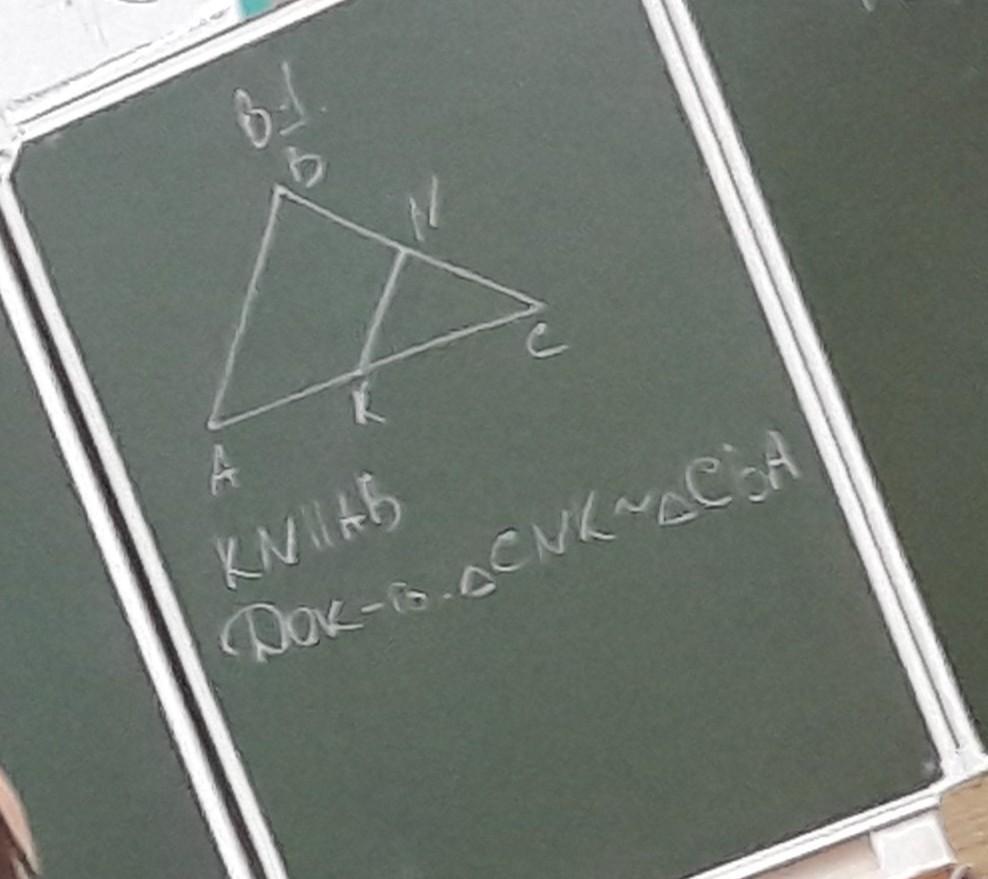 В-1.
B
N
C
K
A
KN||AB
Док-ть. △CNK~△CBA